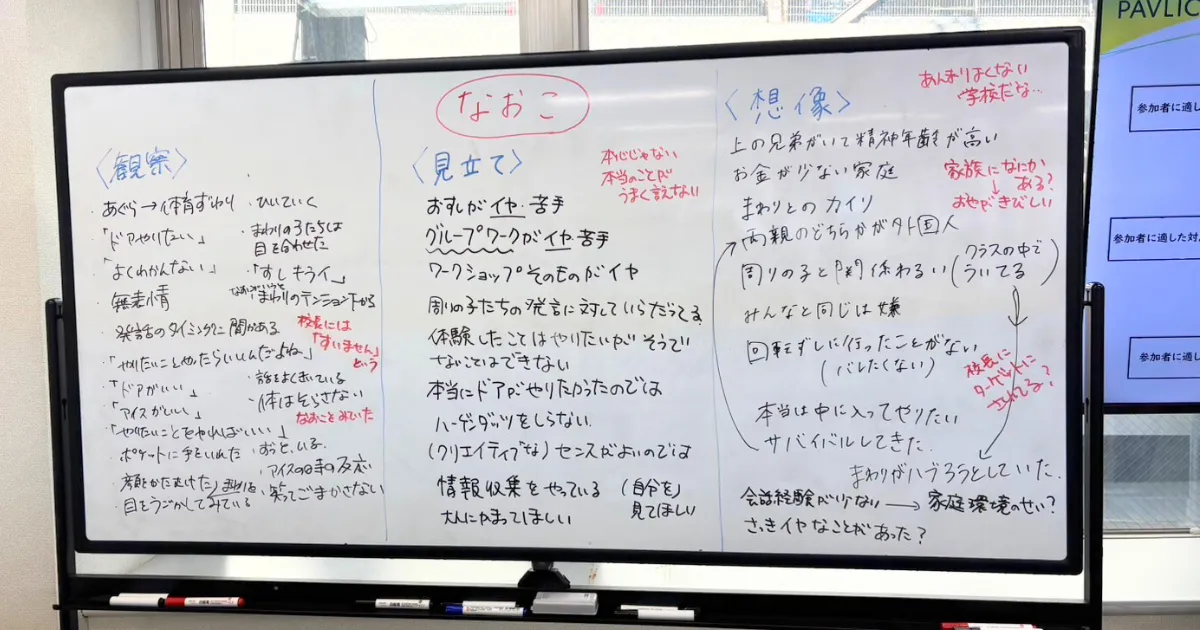 なおこ
〈観察〉
・あぐら→体育ずわり
「ドアやりたい」
「よくわかんない」
・無表情
・発話のタイミングに間がある
・「やりたいことやったらいいんだよね」
・「ドアがいい」
・「アイスがいい」
・「やりたいことをやればいい」
・ポケットに手をいれた
・顔をかたむけた
・目をうごかしてみている
・ひいていく
・まわりの子たちは
目を合わせた
・「すしキライ」
まわりのテンション下がる
校長には
「すいません」
という
・話をよくきいている
・体はそらさない
なおこをみていた
・ずっといる。
・笑ってごまかさない
〈見立て〉
本心じゃない
本当のことが
うまく言えない
おすしがイヤ・苦手
グループワークがイヤ苦手
ワークショップそのものがイヤ
周りの子たちの発言に対していらだってる
体験したことはやりたいが そうで
ないことはできない
本当にドアがやりたかったのでは
ハーゲンダッツをしらない
(クリエイティブな)センスがよいのでは
情報収集をやっている
(自分を)
見てほしい
大人にかまってほしい
〈想像〉
あんまりよくない
学校だな…
上の兄弟がいて精神年齢が高い
お金が少ない家庭
家族になにか
ある?
↓
おやがきびしい
まわりとのカイリ
両親のどちらかが外国人
周りの子と関係わるい
(クラスの中で
ういてる)
みんなと同じは嫌
回転ずしに行ったことがない
(バレたくない)
校長に
ターゲットに
されてる?
本当は中に入ってやりたい
サバイバルしてきた
まわりがハブろうとしていた.
会話経験が少ない→家庭環境のせい?
さっきイヤなことがあった?
PAVLIC
参加者に適し
参加者に適した対
参加者に適し